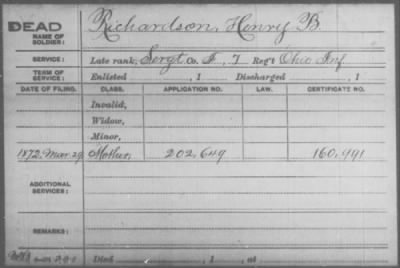 DEAD
NAME OF SOLDIER: Richardson, Henry B.
SERVICE: Late rank, Sergt Co. F, 7 Reg't Ohio Inf
TERM OF SERVICE: Enlisted , 1 Discharged , 1
DATE OF FILING. CLASS. APPLICATION NO. LAW. CERTIFICATE NO.
Invalid,
Widow,
Minor,
1872, Mar. 29 Mother, 202,649 160,991
ADDITIONAL SERVICES:
REMARKS:
Died , 1 , at